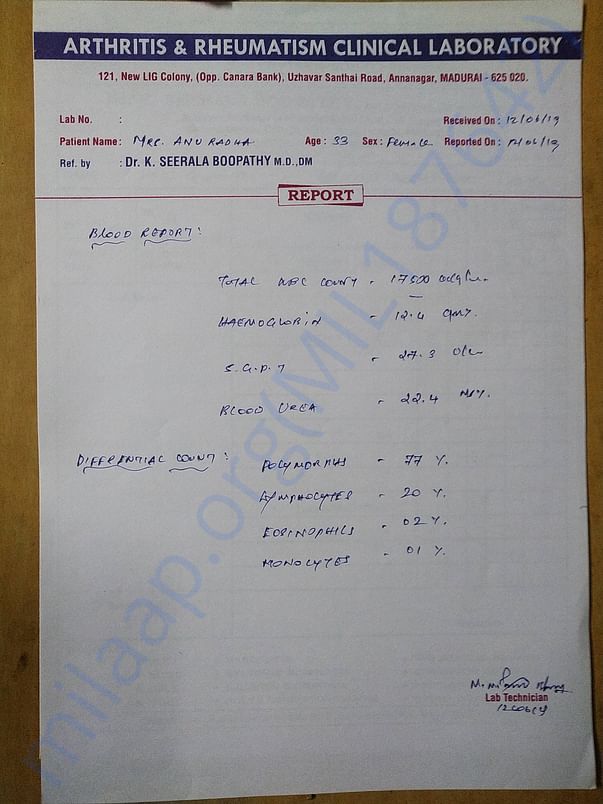 ARTHRITIS & RHEUMATISM CLINICAL LABORATORY
121, New LIG Colony, (Opp. Canara Bank), Uzhavar Santhai Road, Annanagar, MADURAI - 625 020.
Lab No. : Received On : 12/06/19
Patient Name : Mrs. ANURADHA Age : 33 Sex : Female Reported On : 12/06/19
Ref. by : Dr. K. SEERALA BOOPATHY M.D.,DM
REPORT
BLOOD REPORT :
TOTAL WBC COUNT - 17500
HAEMOGLOBIN - 12.4 gm%.
S.G.P.T - 27.3
BLOOD UREA - 22.4
DIFFERNTIAL COUNT :
POLYMORPHS - 77 %.
LYMPHOCYTES - 20 %.
EOSINOPHILS - 02 %.
MONOCYTES - 01 %.
Lab Technician
12/06/19
milaap.org(MIL187642)